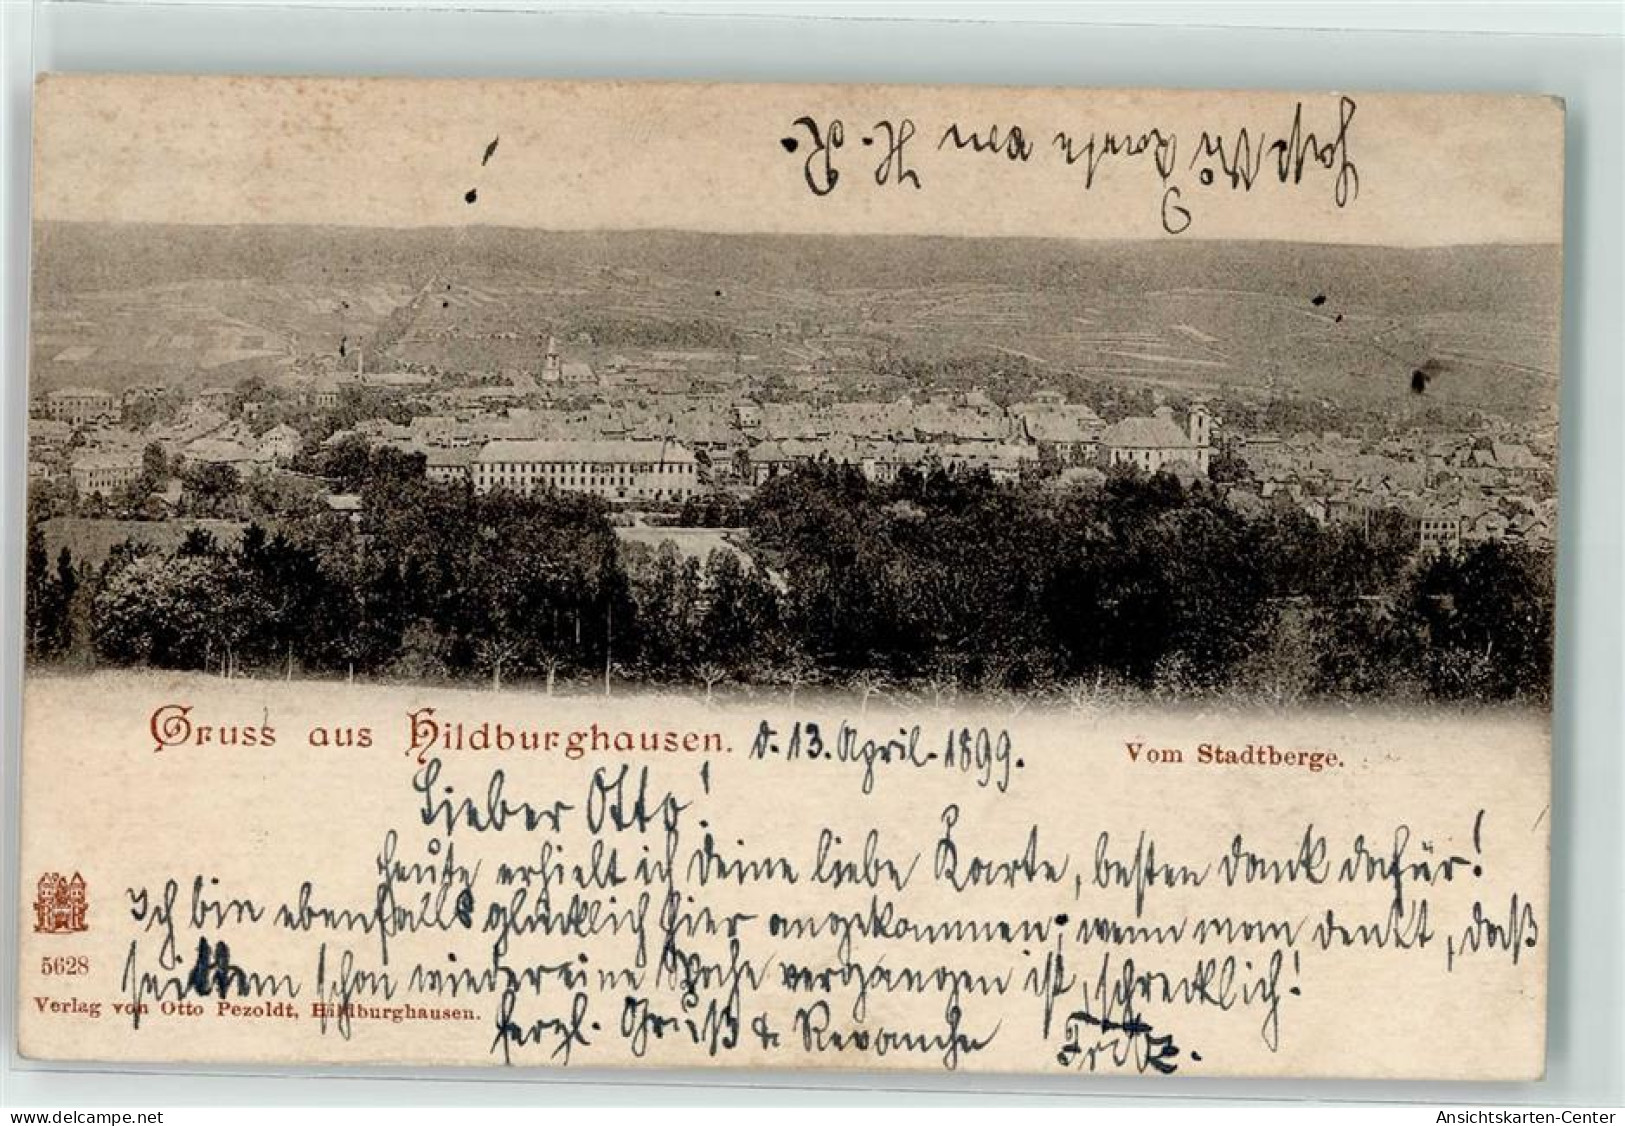 Hast Du Karte von H. R.
Gruss aus Hildburghausen. d. 13. April. 1899. Vom Stadtberge.
Lieber Otto!
Heute erhielt ich Deine liebe Karte, besten Dank dafür!
Ich bin ebenfalls glücklich hier angekommen; wenn man denkt, daß
seitdem schon wieder eine Woche vergangen ist, schrecklich!
5628
Verlag von Otto Pezoldt, Hildburghausen.
herzl. Gruß & Revanche Fritz.
Ansichtskarten-Center